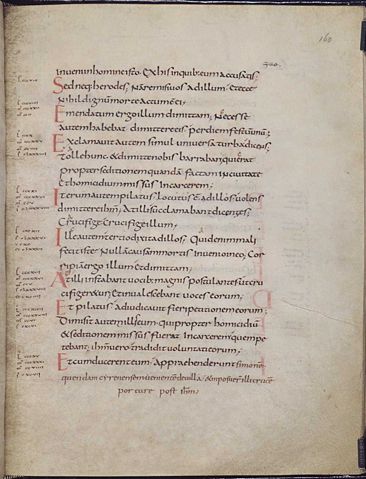 160
invenio in homine isto Ex his in quib; eum accusatis;
Sed neq; herodes, Nam remisi vos ad illum Et ecce
Nihil dignum morte actum est ei,
Emendatum ergo illum dimittam; Necesse
autem habebat dimittere eis per diem festum unu;
Exclamavit autem simul universa turba dicens;
Tolle hunc & dimitte nobis barraban, qui erat
propter seditionem quandam factam in civitate
Et homicidium missus In carcerem;
Iterum autem pilatus locutus est ad illos volens
dimittere ihm; At illi succlamabant dicentes;
Crucifige Crucifige illum;
Ille autem tertio dixit ad illos, Quid enim mali
fecit iste Nullam causam mortis Invenio in eo, Cor
ripiam ergo illum Et dimittam;
At illi instabant vocib; magnis postulantes ut cru
cifigeretur; Et invalescebant voces eorum;
Et pilatus adiudicavit fieri petitionem eorum;
Dimisit autem illis eum qui propter homicidiu
& seditionem missus fuerat In carcerem quem pe
tebant; ihm vero tradidit voluntati eorum;
Et cum ducerent eum Apprehenderunt simone
quendam cyrenensem venientem de villa & imposuer illi cruce
portare post ihm;